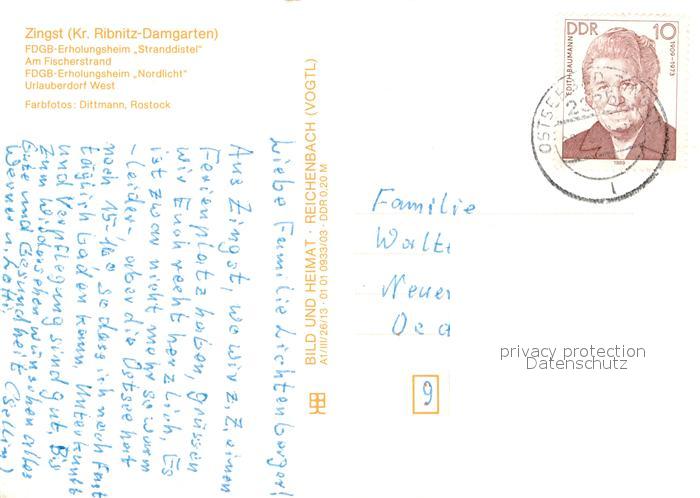 Zingst (Kr. Ribnitz-Damgarten)
FDGB-Erholungsheim „Stranddistel"
Am Fischerstrand
FDGB-Erholungsheim „Nordlicht"
Urlauberdorf West
Farbfotos: Dittmann, Rostock
BILD UND HEIMAT · REICHENBACH (VOGTL)
A1/III/26/13 · 01 01 0933/03 · DDR 0,20 M
Liebe Familie Lichtenberger!
Aus Zingst, wo wir z. Z. einen
Ferienplatz haben, grüssen
wir Euch recht herzlich. Es
ist zwar nicht mehr so warm
- leider - aber die Ostsee hat
noch 15-16° so dass ich noch fast
täglich baden kann. Unterkunft
und Verpflegung sind gut. Bis
zum Wiedersehen wünschen alles
Gute und Gesundheit
Werner u. Lotti
DDR 10
EDITH BAUMANN
1909-1973
1989
OSTSEEBAD
Familie
Walt
Neuer
9
privacy protection
Datenschutz